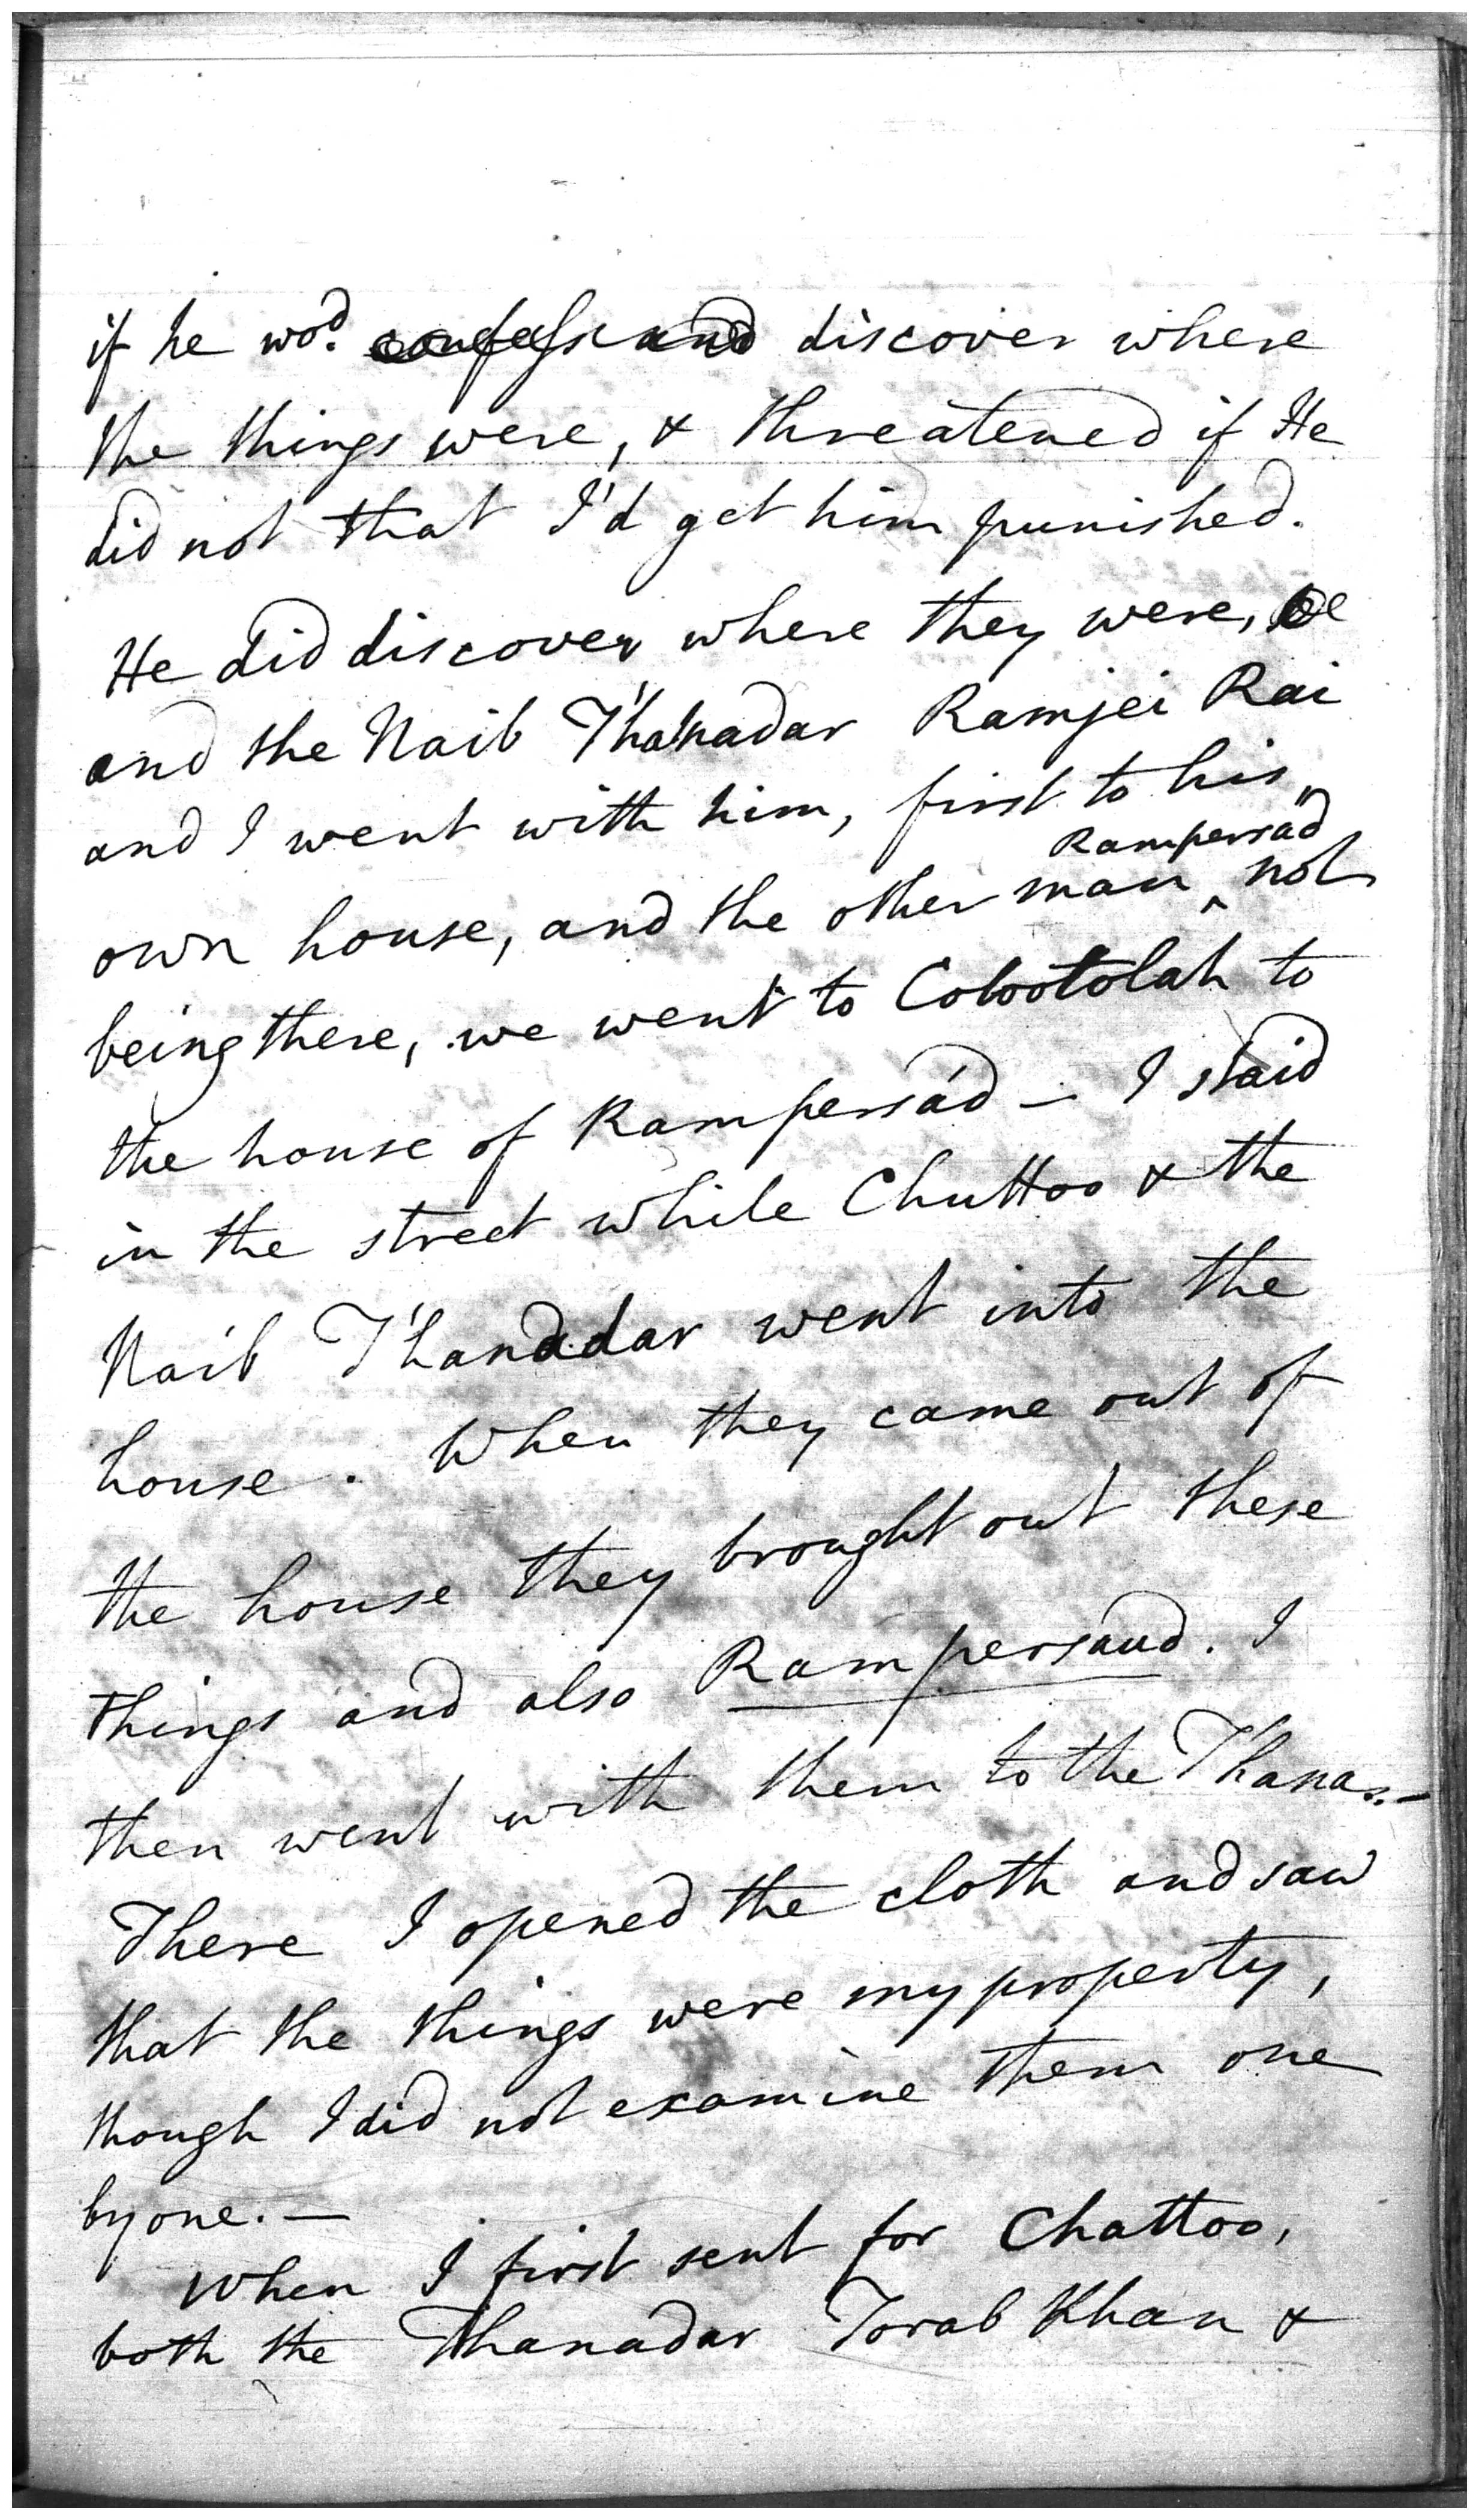 if he wod. confess and discover where
the things were, & threatened if He
did not that I'd get him punished.
He did discover where they were, he
and the Naib T'hanadar Ramjei Rai
and I went with him, first to his
Rampersad
own house, and the other man ^ not
being there, we went to Colootolah to
the house of Rampersád — I staid
in the street while Chuttoo & the
Naib T'hanadar went into the
house. When they came out of
the house they brought out these
things and also Rampersaud. I
then went with them to the Thana. —
There I opened the cloth and saw
that the things were my property,
though I did not examine them one
by one. —
When I first sent for Chattoo,
both the Thanadar Torab Khan &